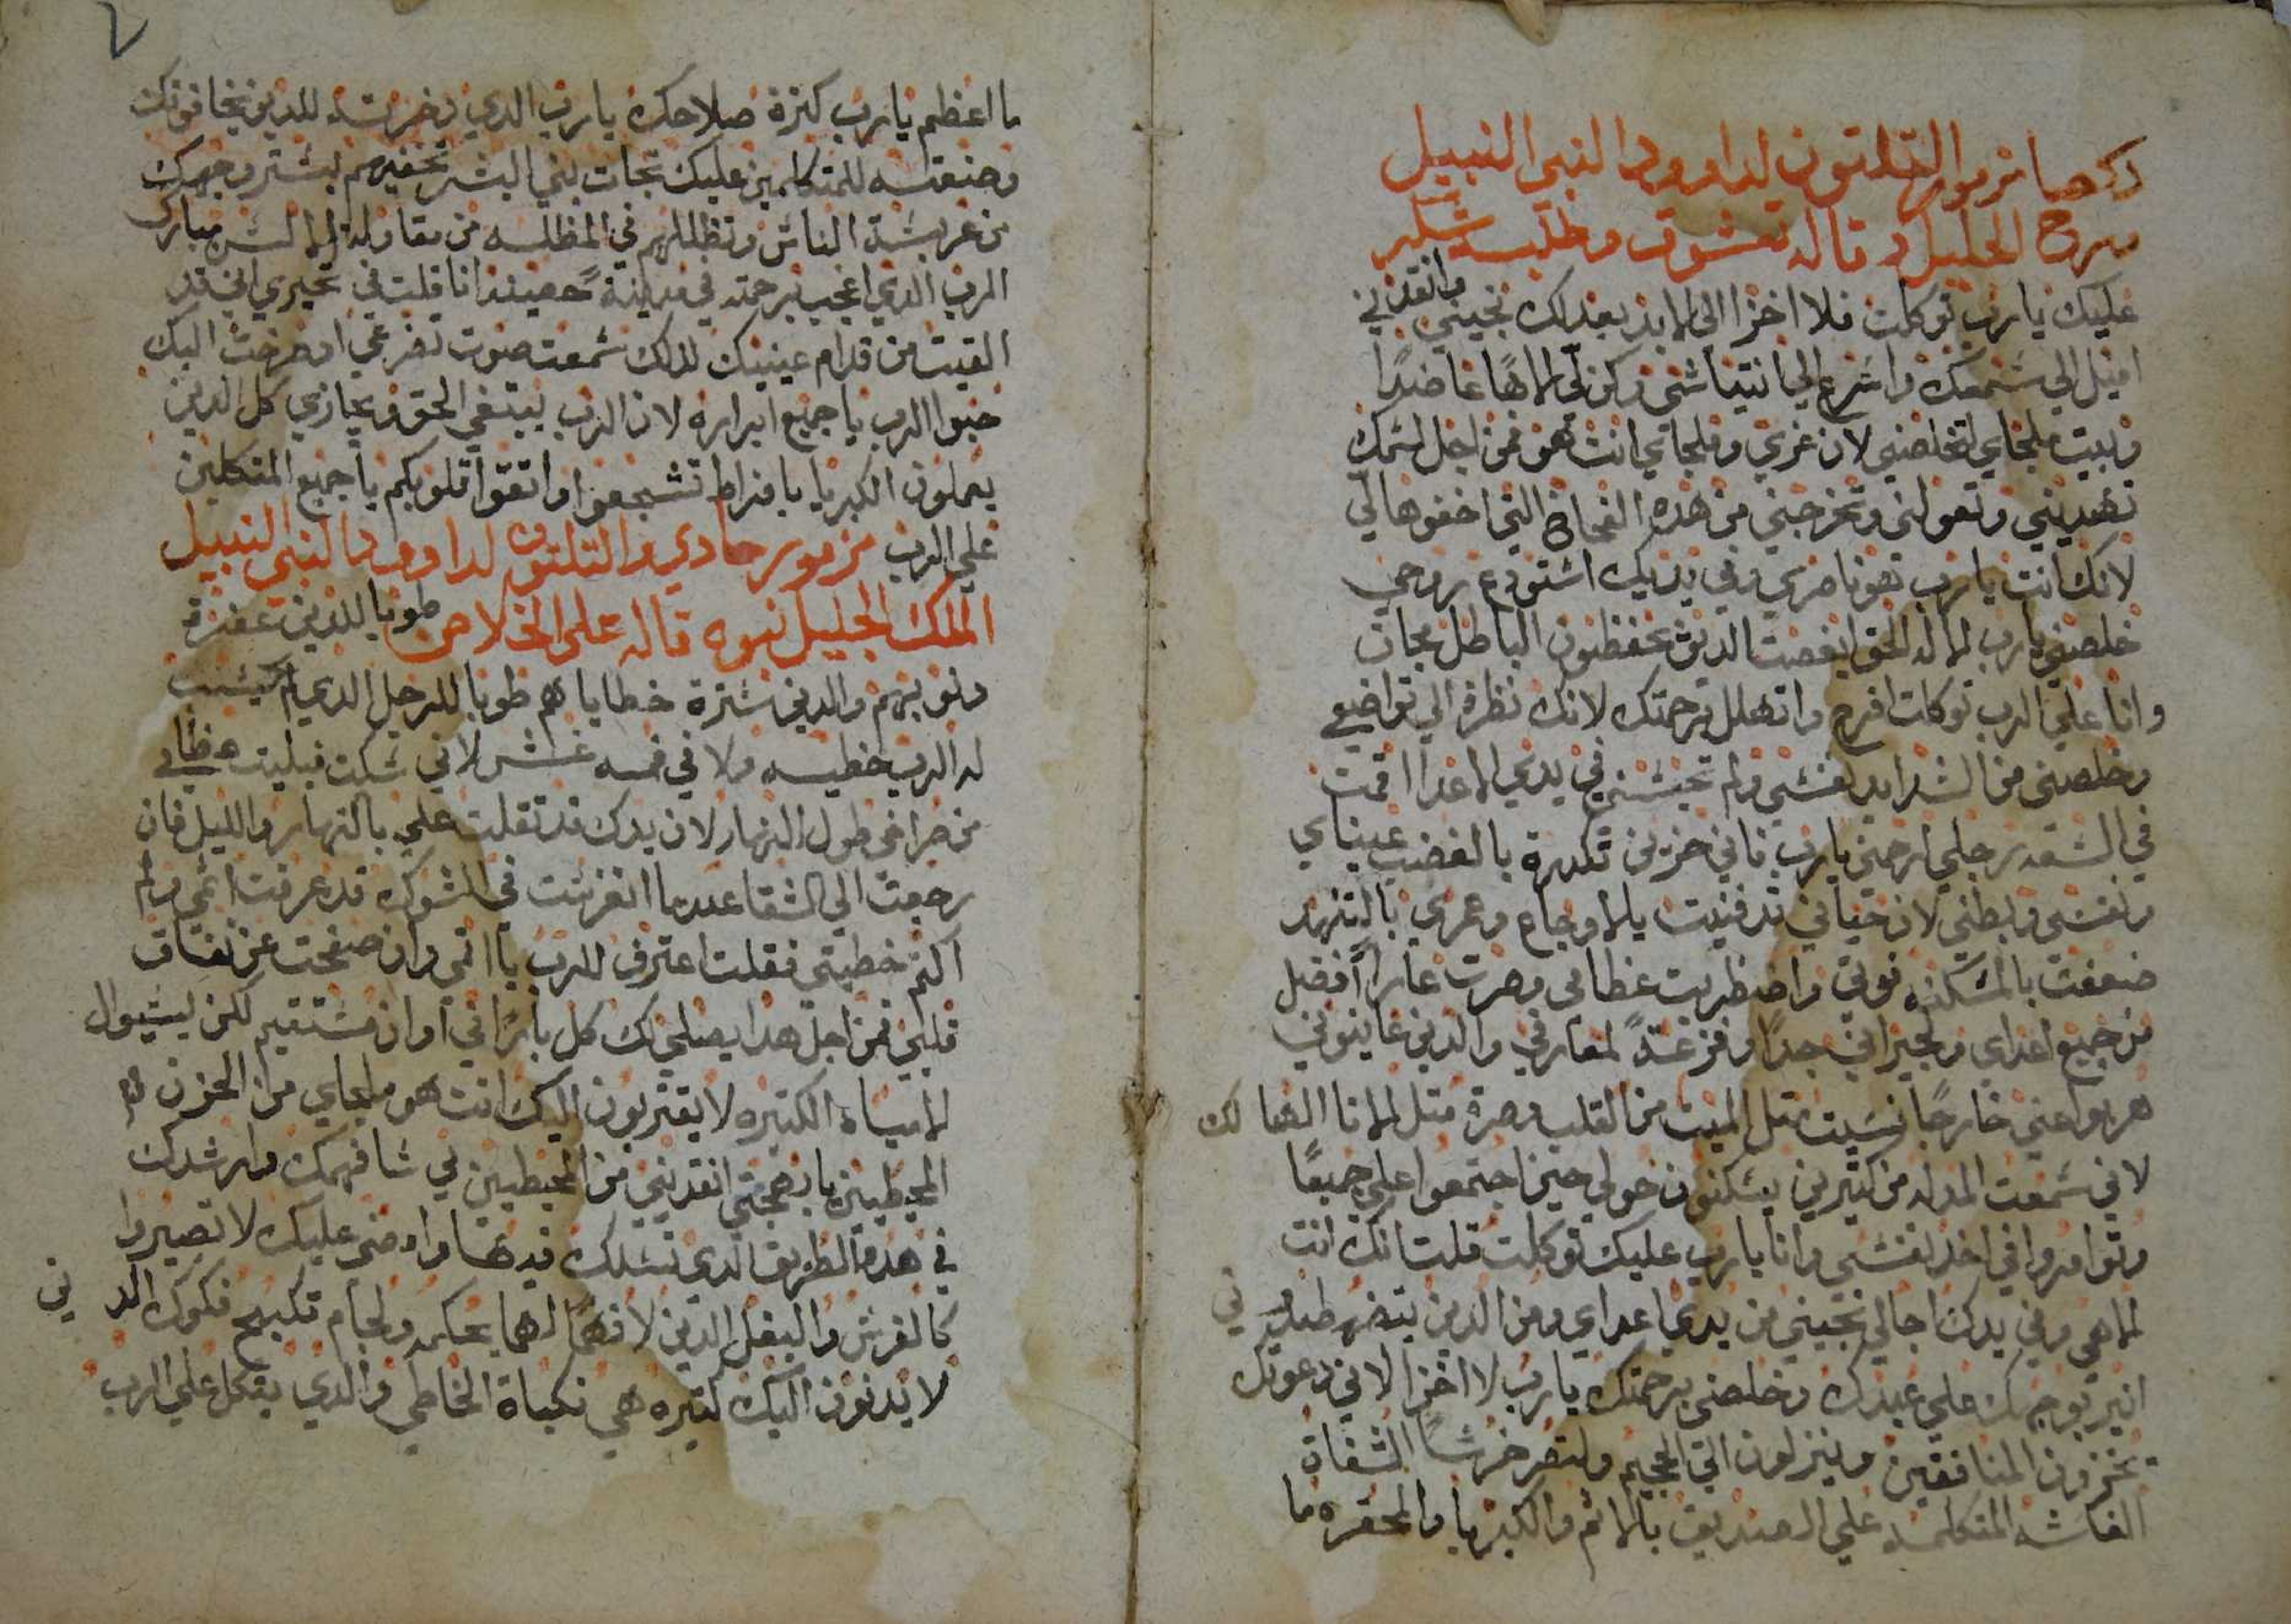 مزمور التلتون لداوود النبي النبيل
الجليل قاله تشوق وطلبه
عليك يا رب توكلت فلا اخزا الى الابد بعدلك نجيني وانقدني
اميل الي سمعك واسرع الي انتياشي وكن لي الاهًا عاضدًا
وبيت ملجاي لتخلصني لان عزي وملجاي انت هو فمن اجل اسمك
تهديني وتعولني وتخرجني من هده الفخاخ التي اخفوها لي
لانك انت يا رب هو ناصري وفي يديك استودع روحي
خلصني يا رب الاله الحق ابغضت الدين يحفظون الباطل مجان
وانا علي الرب توكلت افرح واتهلل برحمتك لانك نظرة الي تواضعي
وخلصني من الشدايد نفسي ولم تحبسني في يدي الاعدا اقمت
في السعه رجلي ارحمني يا رب فاني حزين تكدرة بالغضب عيناي
ونفسي وبطني لان حياتي قد فنيت بالاوجاع وعمري بالتنهد
ضعفت بالمسكنه قوتي واضطربت عظامي وصرت عارًا افضل
من جميع اعداي ولجيراني جدًا وفزعةً لمعارفي والدين عاينوني
هربوا عني خارجًا نسيت متل الميت من القلب وصرة متل الانا الهالك
لاني سمعت المدله من كتيرين يسكنون حولي حين اجتمعوا علي جميعًا
وتوامروا في اخد نفسي وانا يا رب عليك توكلت قلت انك انت
الاهي وفي يدك اجالي نجيني من يدي اعداي ومن الدين يتضهطدوني
انير بوجهك علي عبدك وخلصني برحمتك يا رب لا اخزا لاني دعوتك
يخزون المنافقين وينزلون الي الجحيم ولتصر خرسًا الشفاة
الغاشه المتكلمه علي الصديق بالاتم والكبريا والمحقره ما
ما اعظم يا رب كترة صلاحك يا رب الدي دخرته للدين يخافونك
وصنعته للمتكلين عليك تجات بني البشر تخفيهم بستر وجهك
من عربسة الناس وتظللهم في المظله من مقاولة الالسن مبارك
الرب الدي اعجب برحمته في مدينة حصينه انا قلت في تحيري اني قد
القيت من قدام عينيك لدلك سمعت صوت تضرعي اد صرخت اليك
حبوا الرب يا جميع ابراره لان الرب يبتغي الحق ويجازي كل الدين
يعملون الكبريا بافراط تشجعوا واتقوا قلوبكم يا جميع المتكلين
علي الرب مزمور حادي والتلتون لداوود النبي النبيل
الملك الجليل نبوه قاله علي الخلاص طوبا للدين غفرة
دنوبهم والدين سترة خطاياهم طوبا للرجل الدي لم يحسب
له الرب خطيه ولا في فمه غش لاني سكت فبليت عظامي
من صراخي طول النهار لان يدك قد تقلت علي بالنهار والليل فان
رجعت الي الشقا عندما انغرست في الشوك قد عرفت اتمي ولم
اكتم خطيتي فقلت اعترف للرب باتمي وان صفحت عن نفاق
قلبي فمن اجل هدا يصلي لك كل بارًا في اوان مستقيم لكن ليسيول
المياه الكتيره لا يقتربون اليك انت هو ملجاي من الحزن
المحيطين يا بهجتي انقديني من المحيطين بي سافهمك وارشدك
في هده الطريق الدي تسلك فيها واوضي عليك لا تصيروا
كالفرس والبغل الدين لا فهمًا لهما بحكمه ولجام تكبح فكوك الدين
لا يدنون اليك كتيره هي نكباة الخاطي والدي يتكل علي الرب